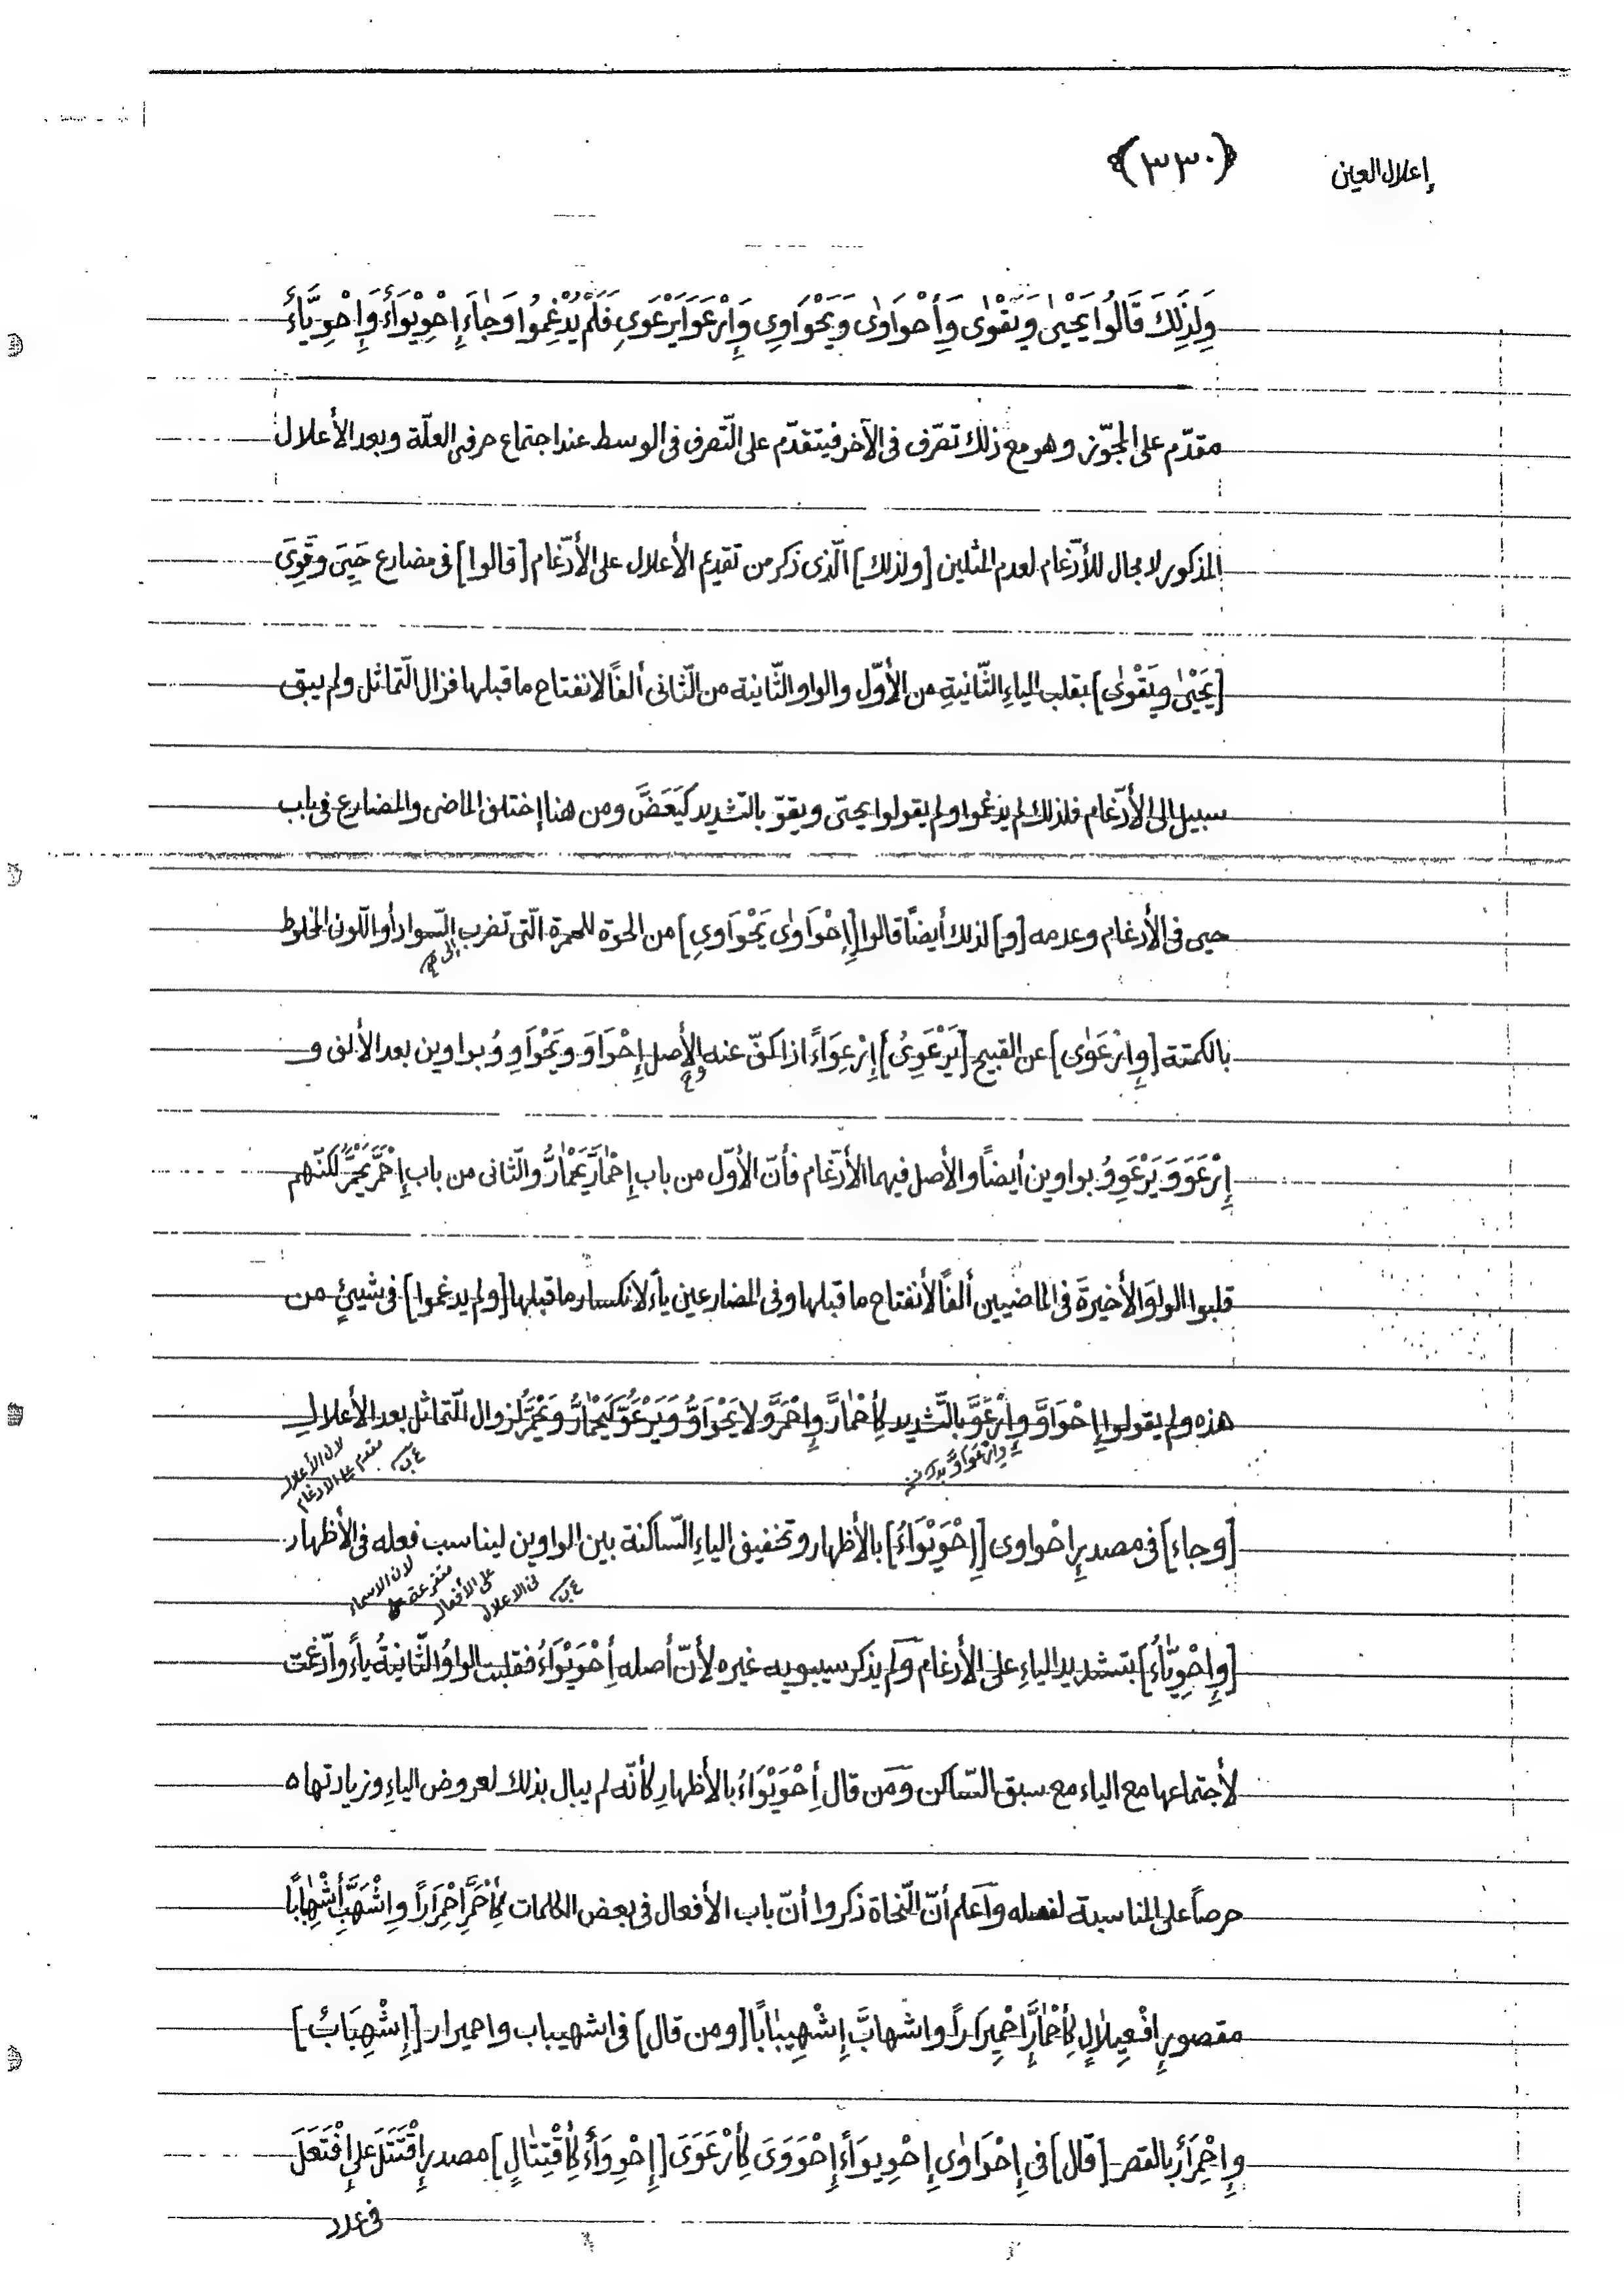 إعلال العين
﴿٣٣٠﴾
وَلِذَلِكَ قَالُوا يَحْيىٰ وَيَقْوىٰ وَإِحْوَاوىٰ وَيَحْوَاوِى وَإِرْعَوَا يَرْعَوِى فَلَمْ يُدْغِمُوا وَجَاءَ إِحْوِيْوَاءٌ وَإِحْوِيَّاءٌ
مقدّم على المجوّز وهو مع ذلك تصّرف فى الآخر فيتقدّم على التّصرف فى الوسط عند اجتماع حرفى العلّة وبعد الأعلال
المذكور لا مجال للأدّغام لعدم المثلين [ولذلك] الّذى ذكر من تقديم الأعلال على الأدّغام [قالوا] فى مضارع حَيِىَ وقَوِىَ
[يَحْيىٰ ويَقْوىٰ] بقلب الياءِ الثّانيةِ من الأوّل والواو الثّانية من الثّانى ألفاً لانفتاح ما قبلها فزال التّماثل ولم يبق
سبيل الى الأدّغام فلذلك لم يدغموا ولم يقولوا يحىّ ويقوّ بالتّشديد كَيَعَضَّ ومن هنا إختلف الماضى والمضارع فى باب
حيى فى الأدغام وعدمه [و] لذلك أيضاً قالوا [إِحْوَاوىٰ يَحْوَاوِى] من الحوة للحمرة الّتى تضرب إلى السّواد أو اللّون المخلوط
بالكمتة [وإِرْعَوىٰ] عن القبيح [يَرْعَوِىْ] إِرْعِوَاءً اذا كفّ عنه والأصل إِحْوَاوَ ويَحْوَاوِوُ بواوين بعد الألف و
إِرْعَوَوَ يَرْعَوِوُ بواوين أيضاً والأصل فيهما الأدّغام فأنّ الأوّل من باب إِحْمَارَّ يَحْمَارُّ والثّانى من باب إِحْمَرَّ يَحْمَرُّ لكنّهم
قلبوا الواوَ الأخيرةَ فى الماضيين ألفاً لأنفتاح ما قبلها وفى المضارعين ياءً لانكسار ما قبلها [ولم يدغموا] فى شيئٍ من
هذه ولم يقولوا إِحْوَاوَّ وإِرْعَوَّ بالتّشديد كإِحْمَارَّ وإِحْمَرَّ ولا يَحْوَاوُّ ويَرْعَوُّ كَيَحْمَارُّ ويَحْمَرُّ لزوال التّماثل بعد الأعلال
لان الأعلال
مقدم على الادغام
[وجاء] فى مصدر إِحْوَاوى [إِحْوِيْوَاءٌ] بالأظهار وتخفيف الياءِ السّاكنة بين الواوين ليناسب فعله فى الأظهار
لان الاسماء
متفرعة
على الأفعال
فى الاعلال
[وإِحْوِيَّاءٌ] بتشديد الياءِ على الأدغام ولم يذكر سيبويه غيره لأنّ أصله أِحْوِيْوَاءٌ فقلبت الواوُ الثّانيةُ ياءً وادّغمت
لأجتماعها مع الياء مع سبق السّاكن ومن قال أِحْوِيْوَاءٌ بالأظهارِ كأنّه لم يبال بذلك لعروض الياءِ وزيادتها ه
حرصاً على المناسبة لفعله واعلم أنّ النّحاة ذكروا أنّ باب الأفعال فى بعض الكلمات كإِحْمَرَّ إِحْمِرَاراً وإِشْهَبَّ إِشْهِبَاباً
مقصور إِفْعِيلَالٍ كإِحْمَارَّ إِحْمِيرَاراً واشهابَّ إِشْهِيبَاباً [ومن قال] فى اشهيباب واحميرار [إِشْهِبَابٌ]
وإِحْمِرَارٌ بالقصر [قال] فى إِحْوَاوىٰ إِحْوِيوَاءً إِحْوَوَىَ كإِرْعَوَىَ [إِحْوِوَاءٌ كإِقْتِتَالٍ] مصدر إِقْتَتَلَ على إِفْتَعَلَ
فى عدد